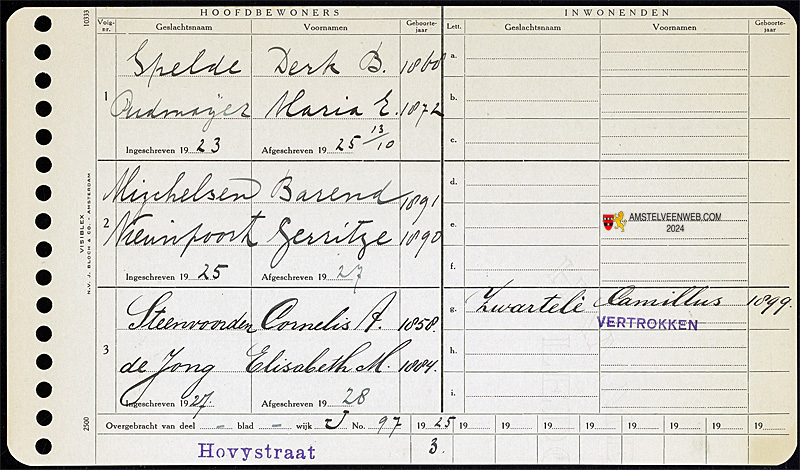 HOOFDBEWONERS
INWONENDEN
Volg-nr. Geslachtsnaam Voornamen Geboorte-jaar Lett. Geslachtsnaam Voornamen Geboorte-jaar
10333
1
Spelde Derk B. 1868
Oudmayer Maria E. 1872
Ingeschreven 19 23 Afgeschreven 19 25 13/10
2
Michelsen Barend 1891
Nieuwpoort Gerritze 1890
Ingeschreven 19 25 Afgeschreven 19 27
3
Steenvoorden Cornelis A. 1858.
de Jong Elisabeth M. 1884.
Ingeschreven 19 27. Afgeschreven 19 28
a.
b.
c.
d.
e.
AMSTELVEENWEB.COM
2024
f.
g. Zwartelé Camillus 1899.
VERTROKKEN
h.
i.
VISIBLEX
N.V. J. BLOCH & CO. - AMSTERDAM
2500
Overgebracht van deel – blad – wijk J No. 97 19 25 19 19 19 19 19 19 19 19
Hovystraat 3.